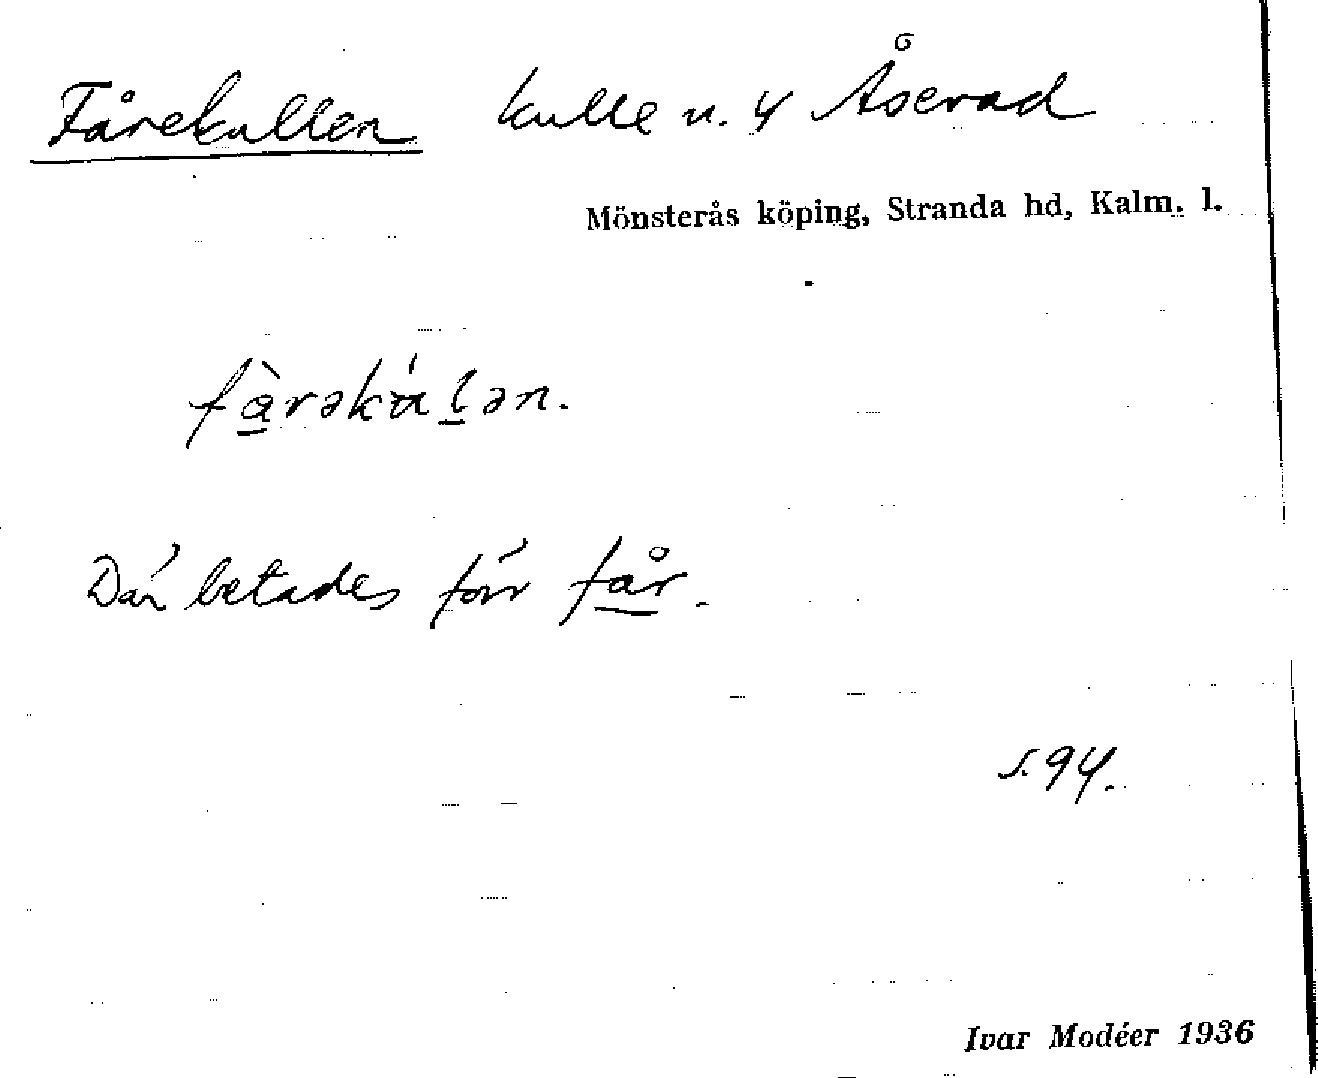 Fårekullen kulle u. 4 Åserad
Mönsterås köping, Stranda hd, Kalm. l.
fàrəkálən.
Där betades förr får.
s. 94.
Ivar Modéer 1936